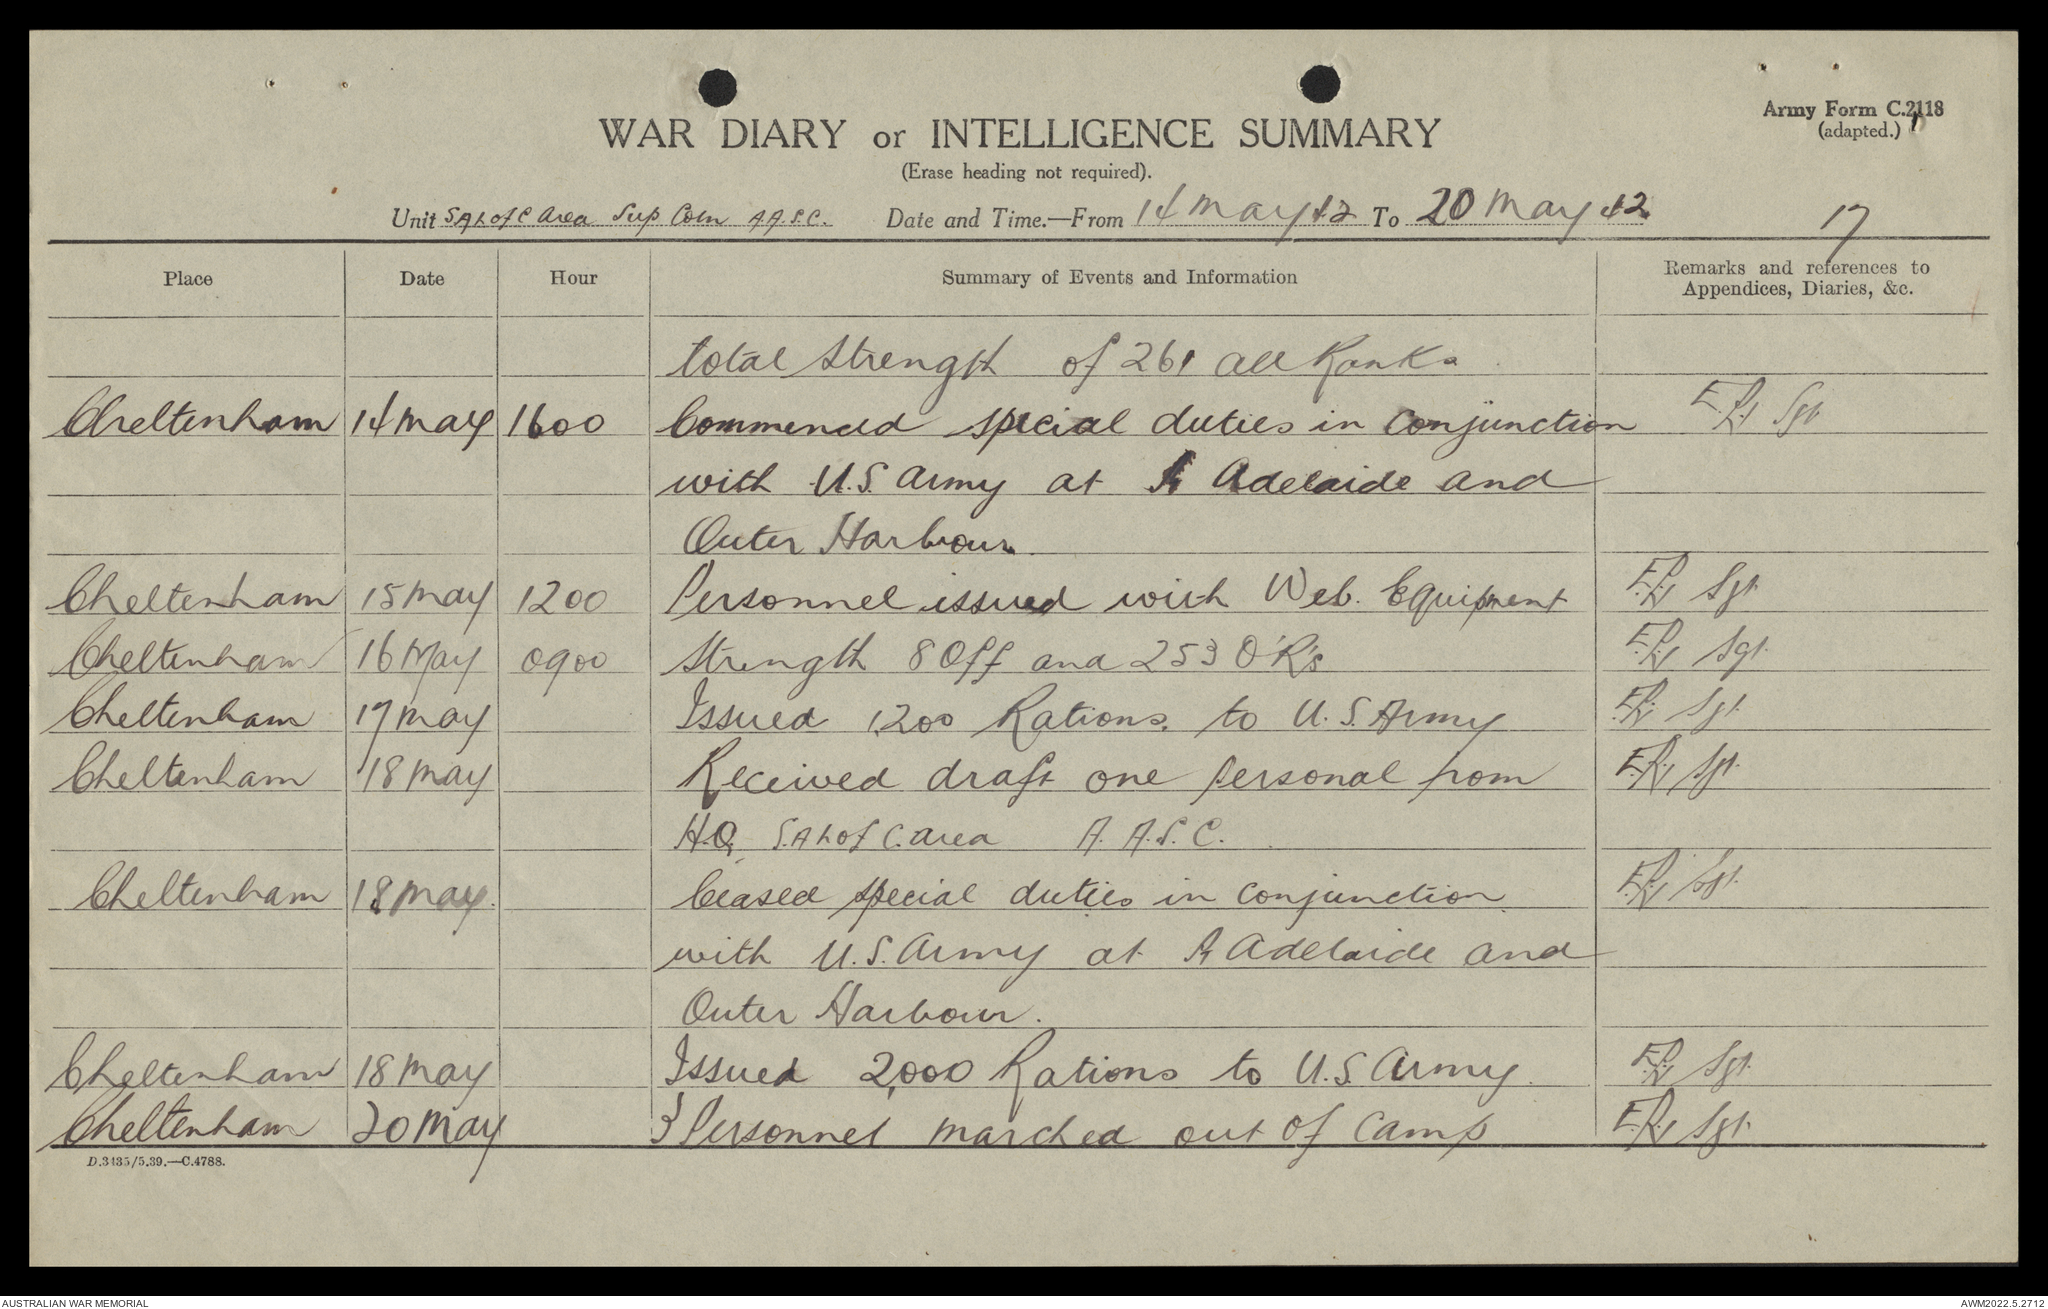 Army Form C.2118
(adapted.)
WAR DIARY or INTELLIGENCE SUMMARY
(Erase heading not required).
Unit S A L of C Area Sup Coln A.A.S.C. Date and Time.—From 14 May 42 To 20 May 42
17
Place Date Hour Summary of Events and Information Remarks and references to
Appendices, Diaries, &c.
total strength of 261 all Ranks
Cheltenham 14 May 1600 Commenced special duties in conjunction Sgt
with U.S. Army at Pt Adelaide and
Outer Harbour.
Cheltenham 15 May 1200 Personnel issued with Web. Equipment Sgt.
Cheltenham 16 May 0900 Strength 8 Off and 253 O'R's Sgt.
Cheltenham 17 May Issued 1,200 Rations. to U.S. Army Sgt.
Cheltenham 18 May Received draft one personal from Sgt.
H.Q. S.A L of C. Area A.A.S.C.
Cheltenham 18 May. Ceased special duties in conjunction Sgt.
with U.S. Army at Pt Adelaide and
Outer Harbour.
Cheltenham 18 May Issued 2,000 Rations to U.S. Army. Sgt.
Cheltenham 20 May 3 Personnel marched out of Camp Sgt.
D.3435/5.39.—C.4788.
AUSTRALIAN WAR MEMORIAL
AWM2022.5.2712